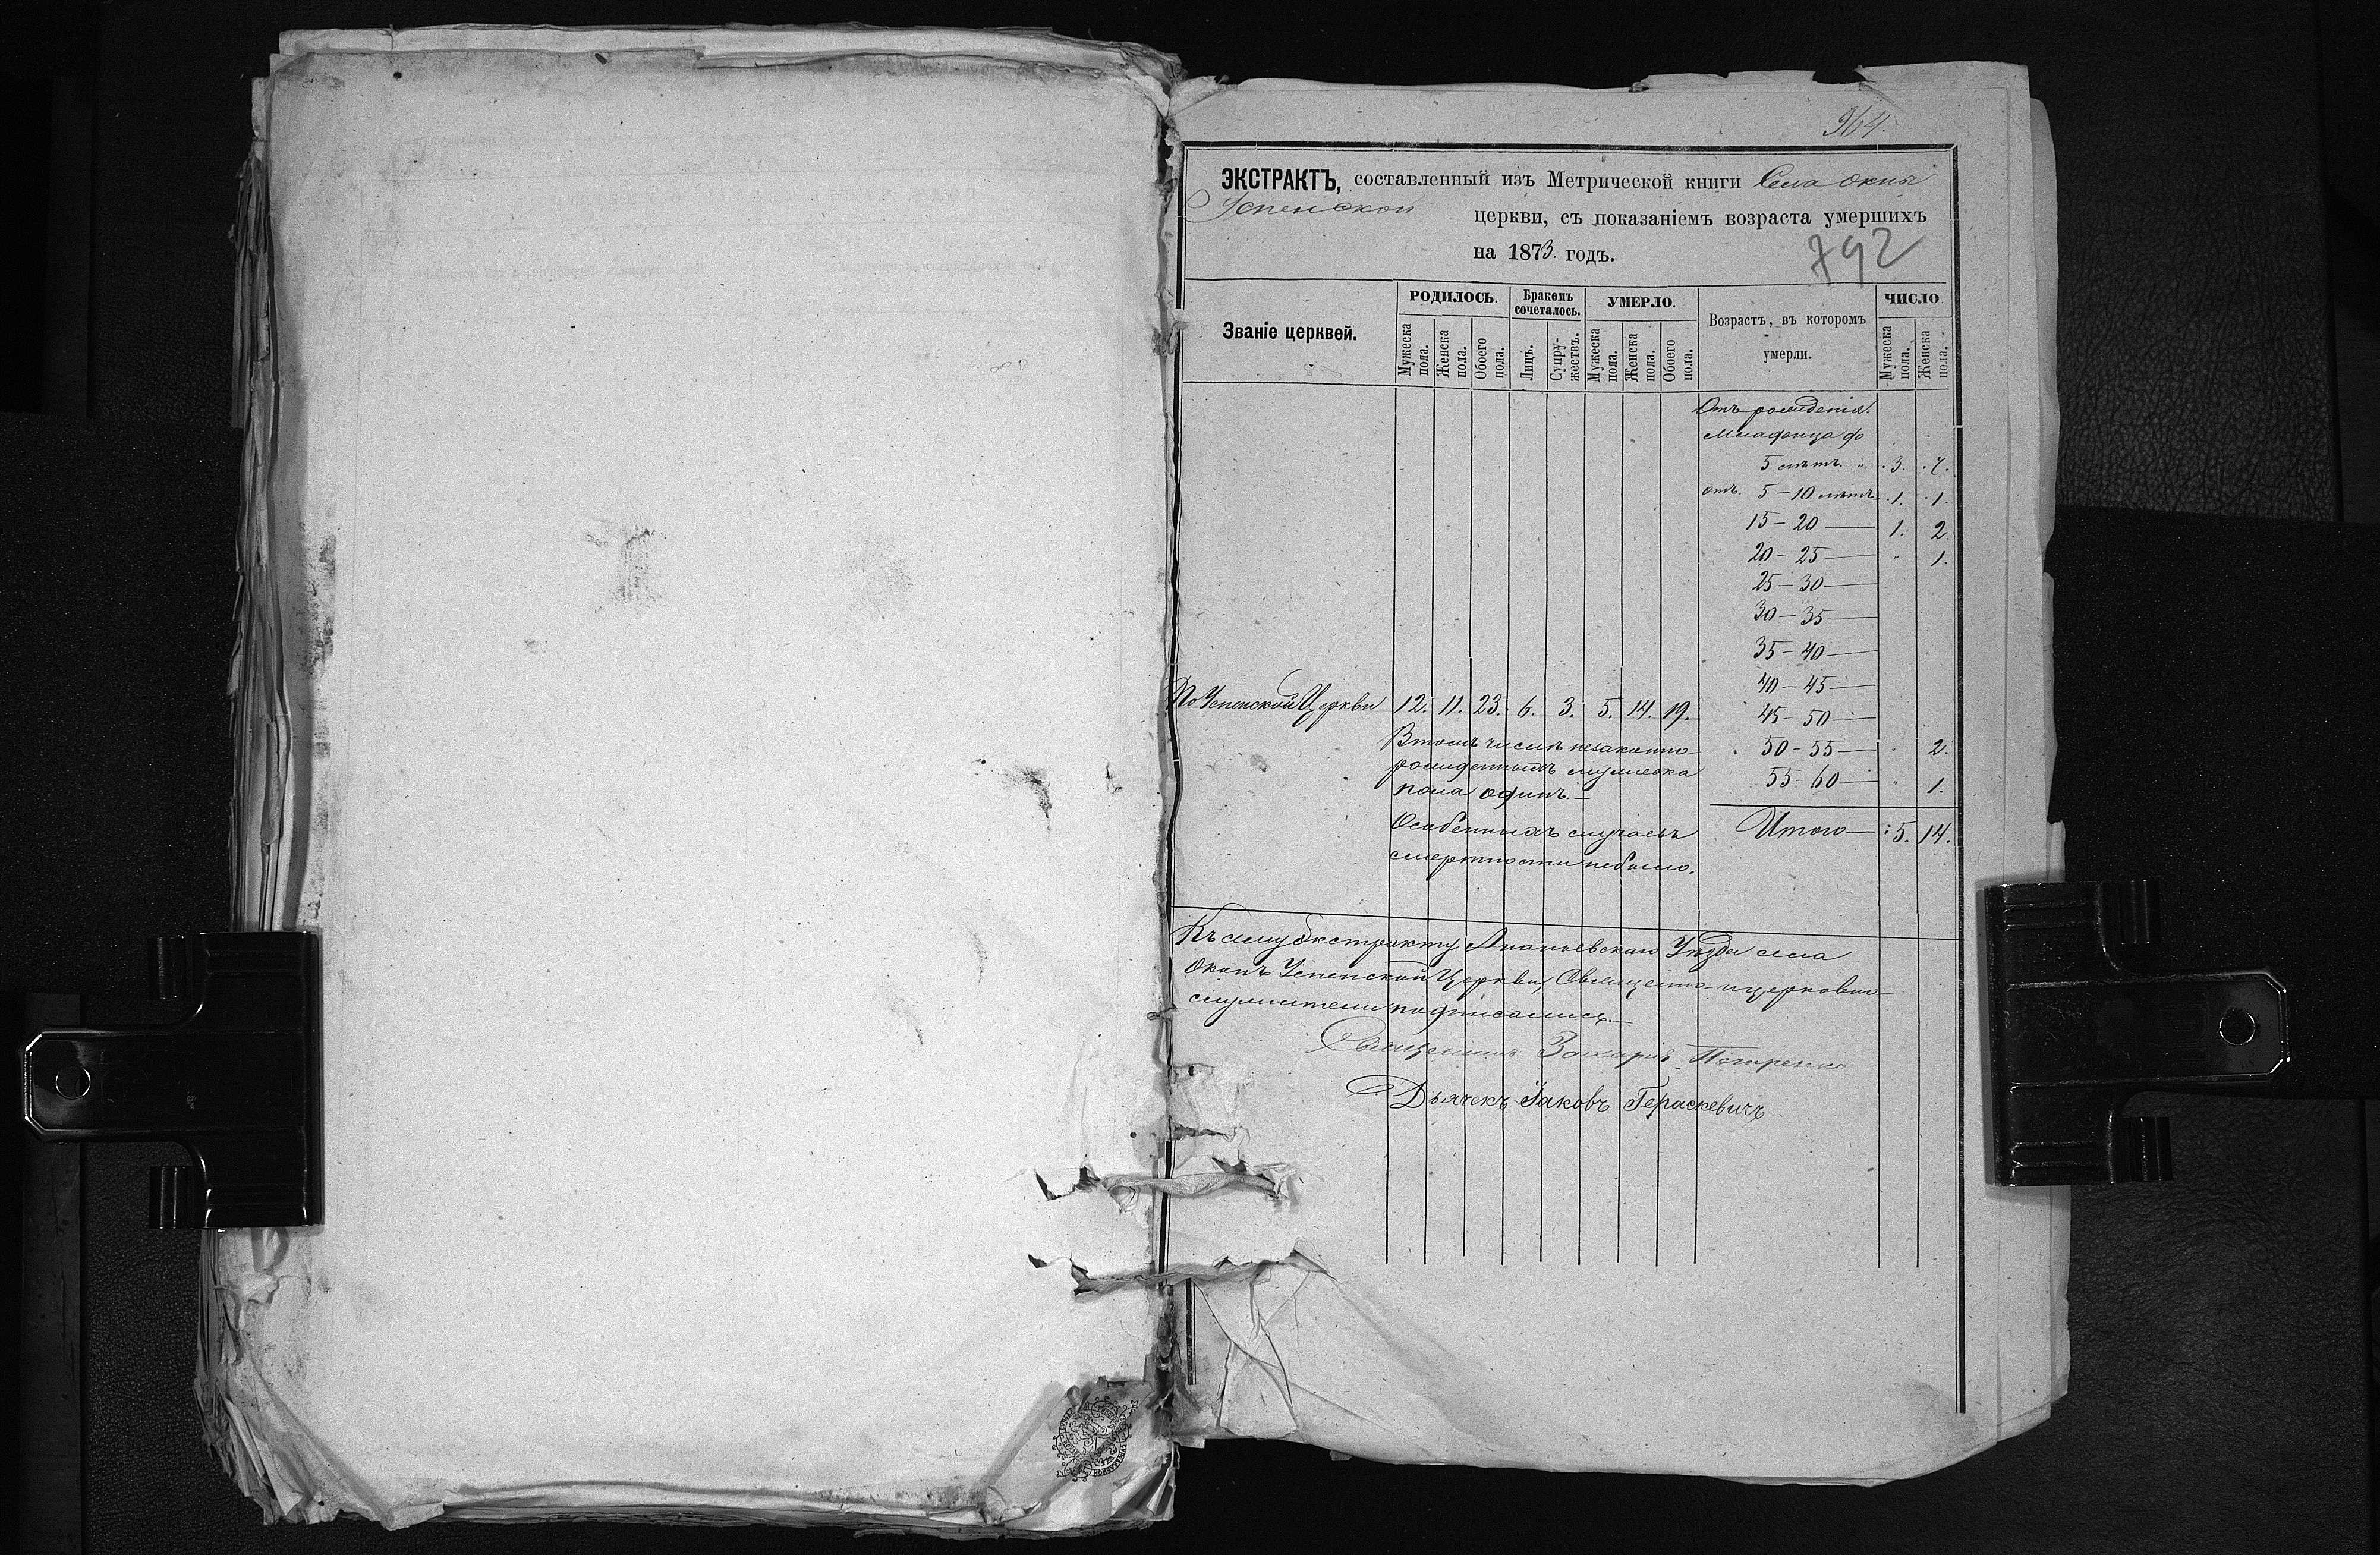 964.
ЭКСТРАКТЪ, составленный изъ Метрической книги Села Окны
Успенской церкви, съ показаніемъ возраста умершихъ
на 1873. годъ.
792
Званіе церквей.
РОДИЛОСЬ.
Бракомъ сочеталось.
УМЕРЛО.
Возрастъ, въ которомъ умерли.
ЧИСЛО
Мужеска пола.
Женска пола.
Обоего пола.
Лицъ.
Супружествъ.
Мужеска пола.
Женска пола.
Обоего пола.
Мужеска пола.
Женска пола.
Отъ рожденія.
Младенца до
5 лѣтъ. " 3. 7.
отъ. 5-10 лѣтъ 1. 1.
15-20 — 1. 2.
20-25 — " 1.
25-30 —
30-35 —
35-40 —
40-45 —
По Успенской Церкви 12. 11. 23. 6. 3. 5. 14. 19.
45-50 —
Втомъ числѣ незаконно-
рожденныхъ мужеска
пола одинъ.—
50-55 — " 2.
55-60 — " 1.
Особенныхъ случаевъ
смертности небыло.
Итого — 5. 14.
Къ сему Экстракту Ананьевскаго Уѣзда села
Окнъ Успенской Церкви, Священно-ицерковно-
служители подписались.—
Священникъ Захарій
Дьячекъ Іаковъ Гераскевичъ